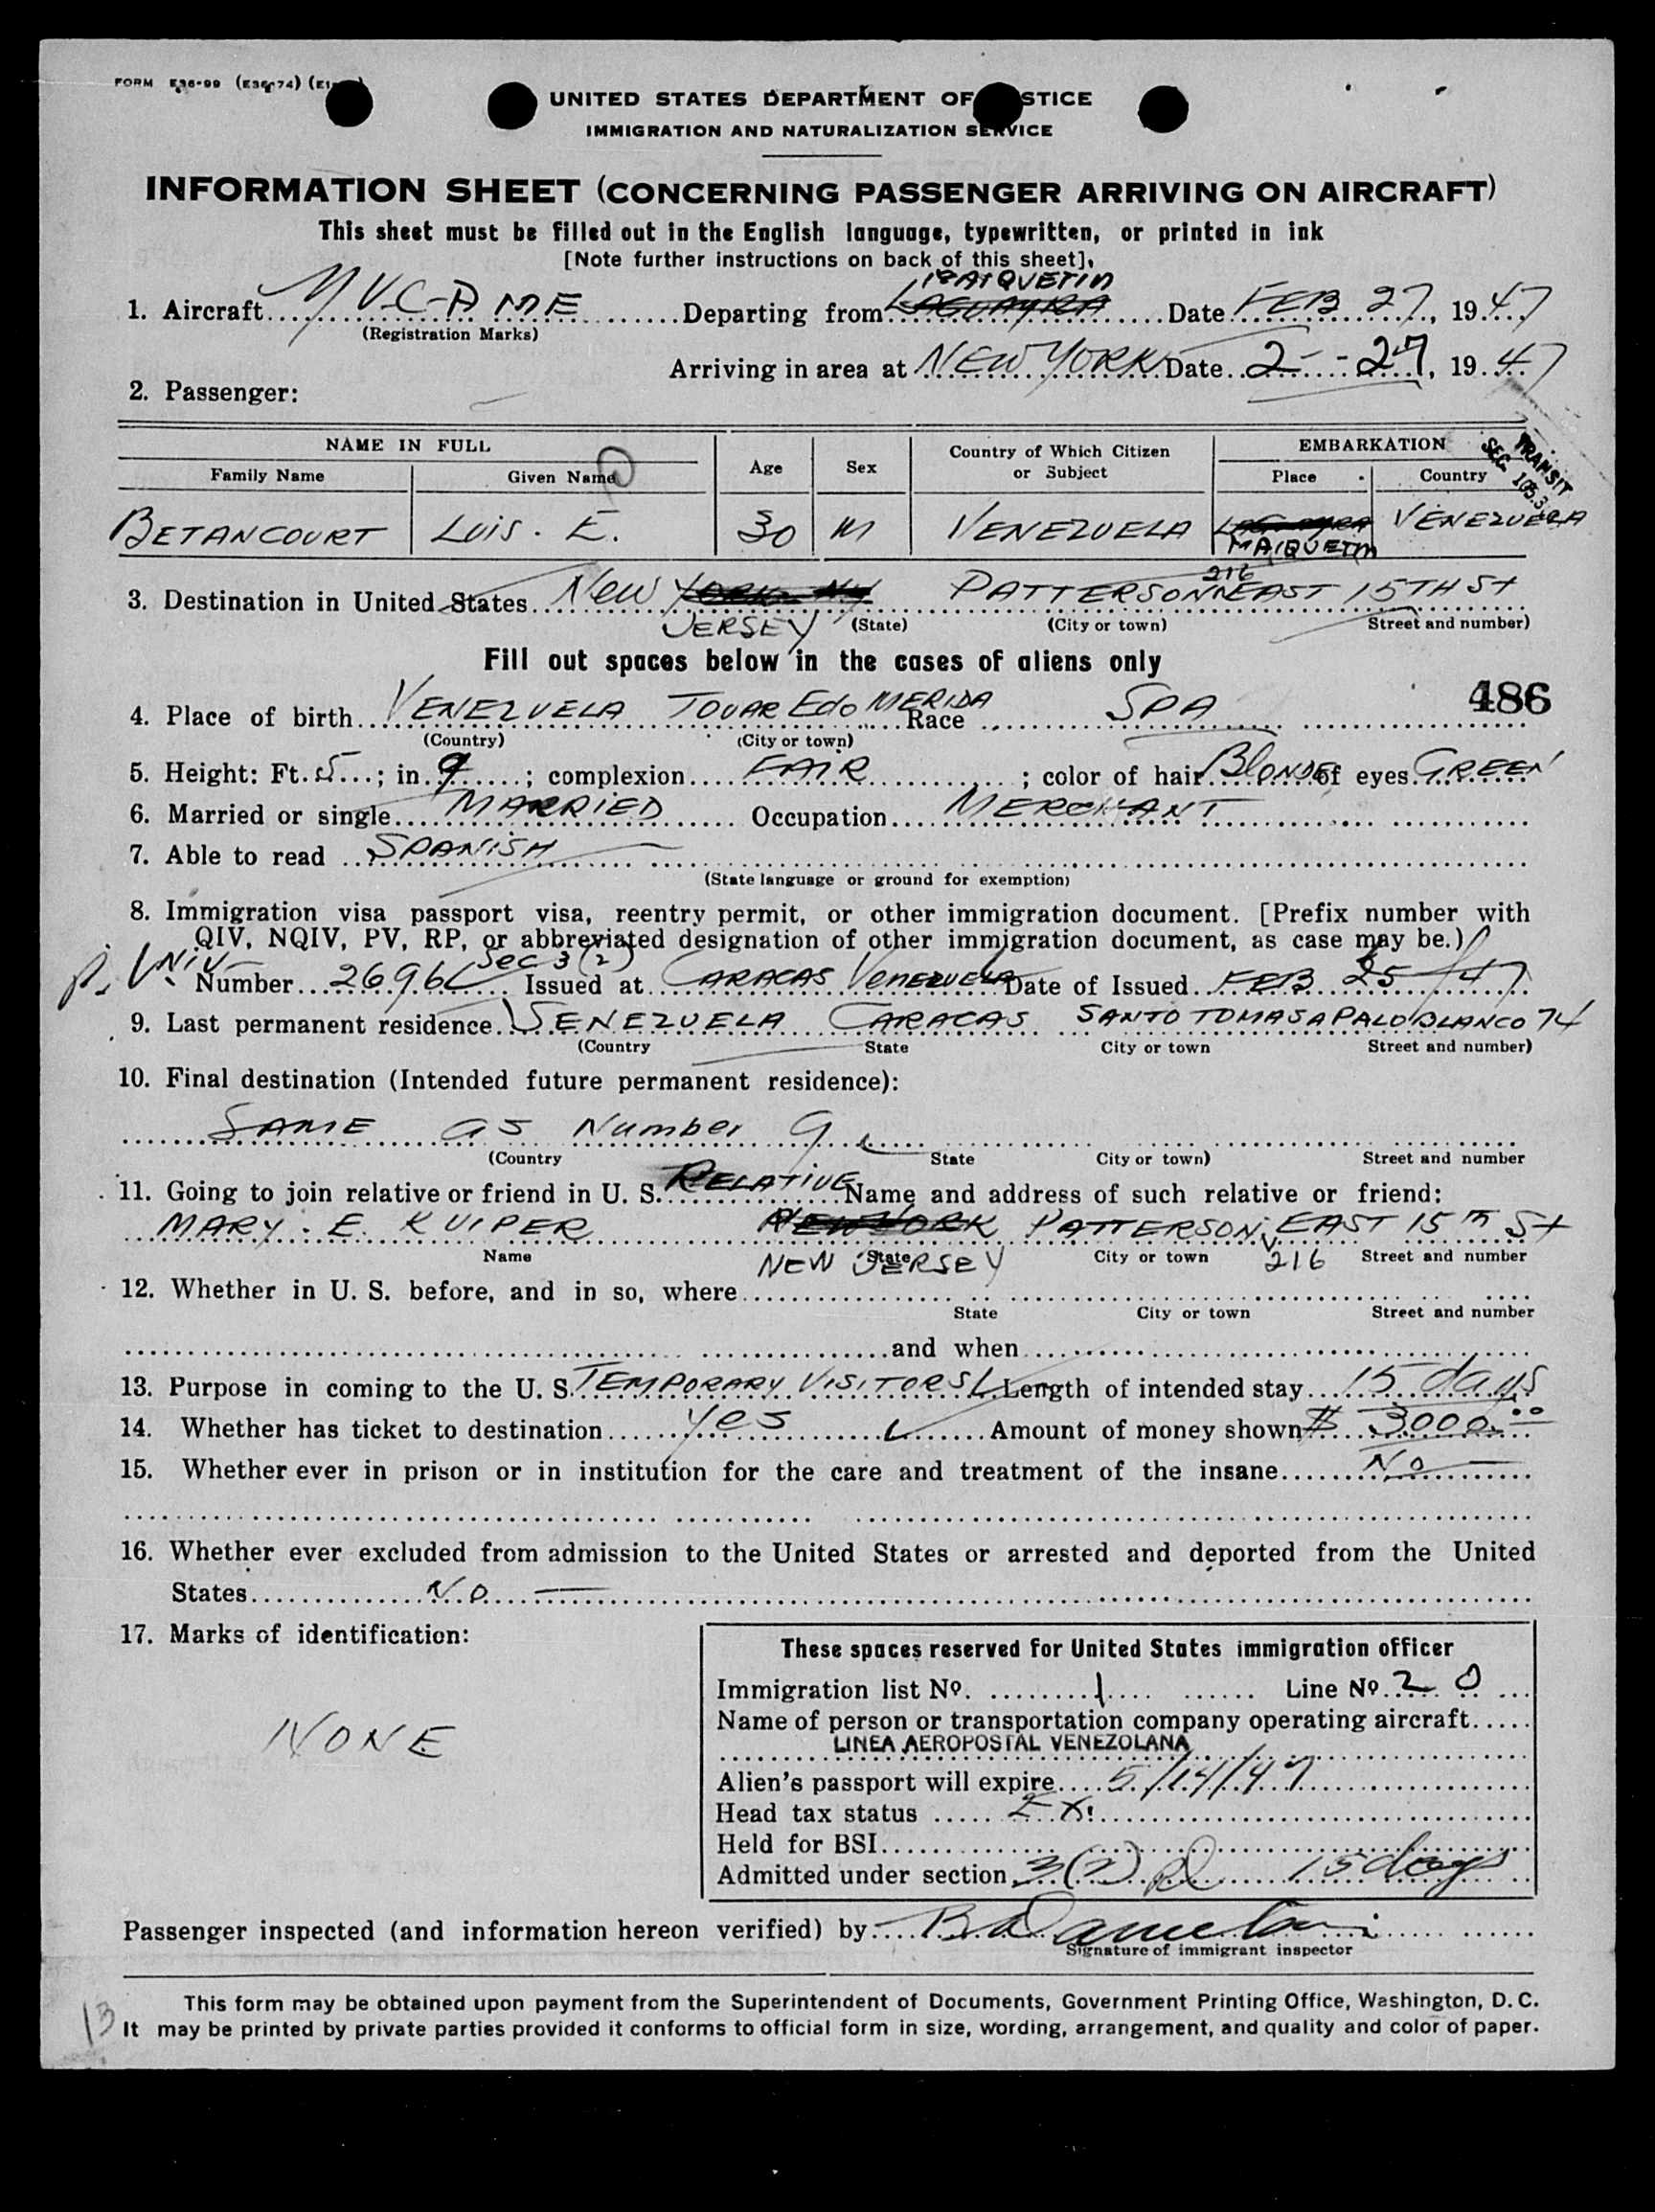 FORM E36-99 (E36-74)
UNITED STATES DEPARTMENT OF JUSTICE
IMMIGRATION AND NATURALIZATION SERVICE
INFORMATION SHEET (CONCERNING PASSENGER ARRIVING ON AIRCRAFT)
This sheet must be filled out in the English language, typewritten, or printed in ink
[Note further instructions on back of this sheet],
MAIQUETIA
1. Aircraft YVC-AME Departing from LAGUAYRA Date FEB 27, 1947
(Registration Marks)
Arriving in area at NEW YORK Date 2--27, 1947
2. Passenger:
NAME IN FULL Age Sex Country of Which Citizen or Subject EMBARKATION
Family Name Given Name Place Country
TRANSIT
SEC. 105.3
BETANCOURT LUIS. E. 30 M VENEZUELA VENEZUELA
MAIQUETIA
216
3. Destination in United States NEW YORK NY PATTERSON EAST 15TH St
JERSEY (State) (City or town) Street and number)
Fill out spaces below in the cases of aliens only
486
4. Place of birth VENEZUELA TOVAR Edo MERIDA Race SPA
(Country) (City or town)
5. Height: Ft. 5; in. 9; complexion FAIR; color of hair BLONDE of eyes GREEN
6. Married or single MARRIED Occupation MERCHANT
7. Able to read SPANISH
(State language or ground for exemption)
8. Immigration visa passport visa, reentry permit, or other immigration document. [Prefix number with
QIV, NQIV, PV, RP, or abbreviated designation of other immigration document, as case may be.)
NIV Sec 3(2)
P.V. Number 2696 Issued at CARACAS VENEZUELA Date of Issued FEB 25/47
9. Last permanent residence VENEZUELA CARACAS SANTO TOMAS A PALO BLANCO 74
(Country State City or town Street and number)
10. Final destination (Intended future permanent residence):
SAME as Number 9
(Country State City or town) Street and number
11. Going to join relative or friend in U. S. RELATIVE Name and address of such relative or friend:
MARY. E. KUIPER NEW YORK PATTERSON EAST 15th St
Name State City or town Street and number
NEW JERSEY 216
12. Whether in U. S. before, and in so, where
State City or town Street and number
and when
13. Purpose in coming to the U. S. TEMPORARY VISITORS Length of intended stay 15 days
14. Whether has ticket to destination Yes Amount of money shown $ 3000.00
15. Whether ever in prison or in institution for the care and treatment of the insane No
16. Whether ever excluded from admission to the United States or arrested and deported from the United
States No
17. Marks of identification:
NONE
These spaces reserved for United States immigration officer
Immigration list No. 1 Line No. 20
Name of person or transportation company operating aircraft
LINEA AEROPOSTAL VENEZOLANA
Alien's passport will expire 5/14/47
Head tax status Ex.
Held for BSI
Admitted under section 3(2) 15 days
Passenger inspected (and information hereon verified) by
Signature of immigrant inspector
This form may be obtained upon payment from the Superintendent of Documents, Government Printing Office, Washington, D. C.
13
It may be printed by private parties provided it conforms to official form in size, wording, arrangement, and quality and color of paper.